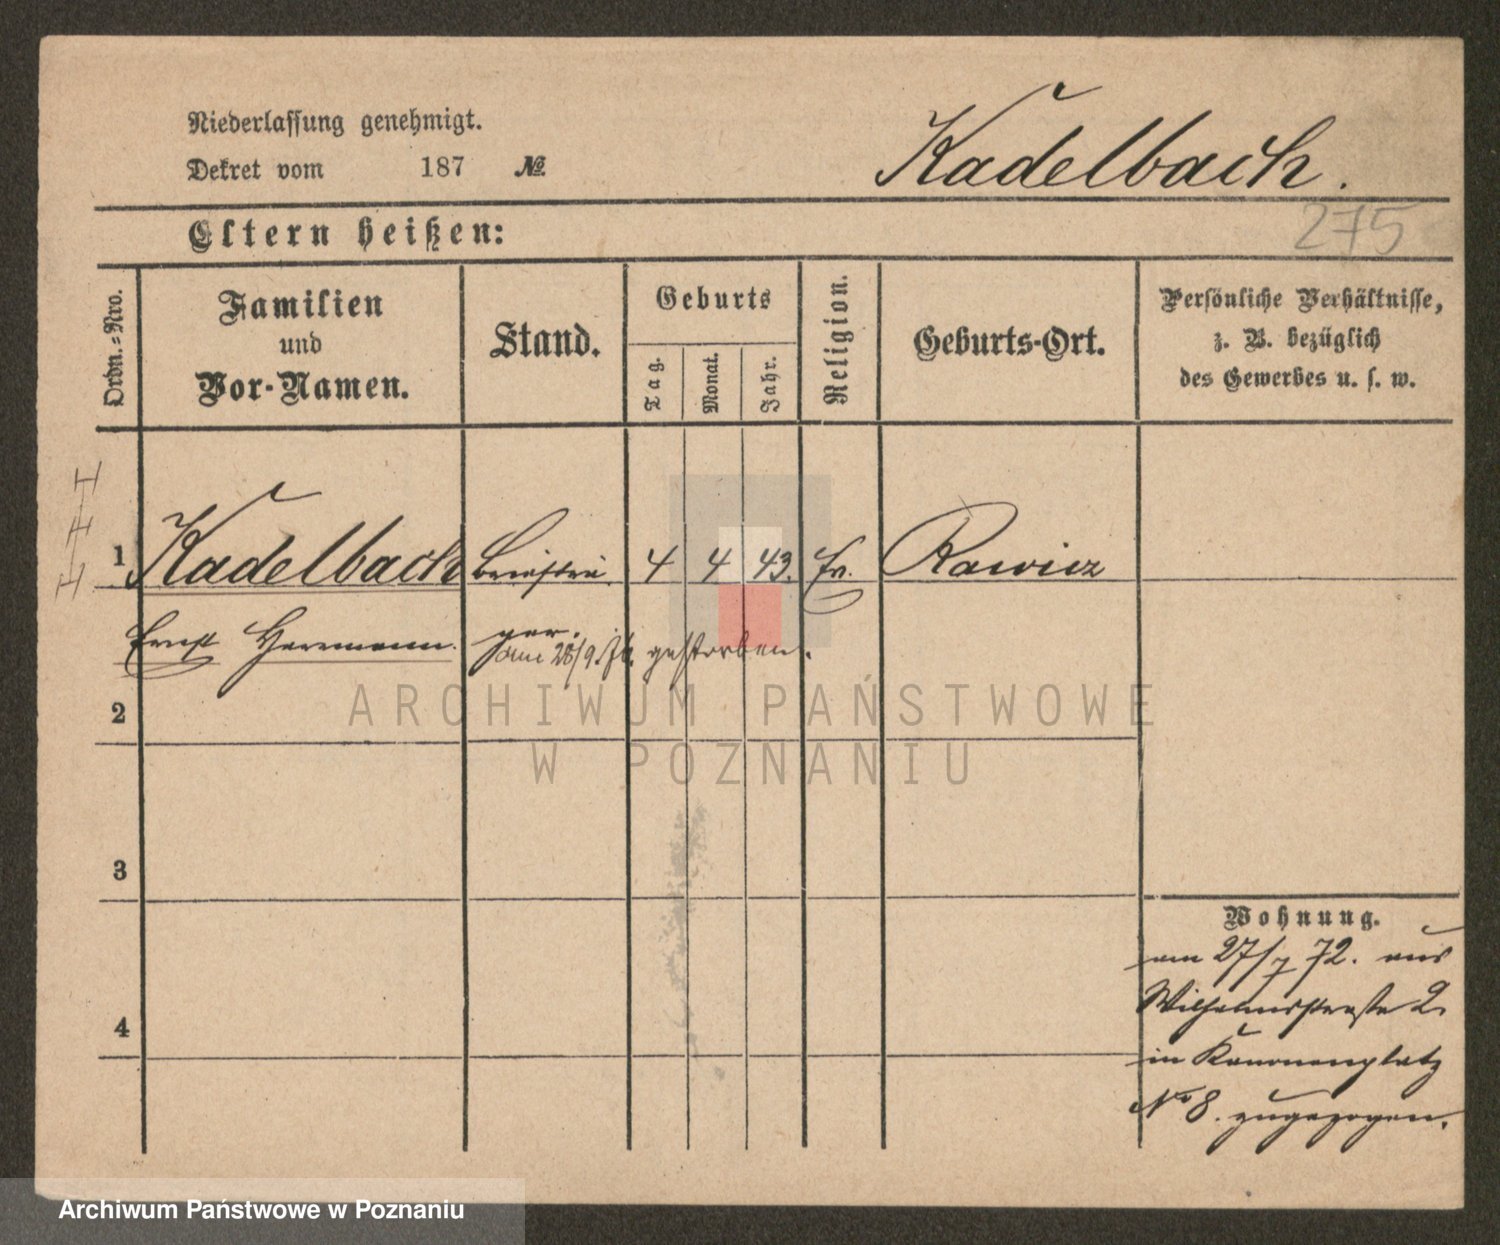 Niederlassung genehmigt.
Dekret vom 187 №
Kadelbach.
275
Eltern heißen:
Ordn.-Nro.
Familien
und
Vor-Namen.
Stand.
Geburts
Tag.
Monat.
Jahr.
Religion.
Geburts-Ort.
Persönliche Verhältnisse,
z. B. bezüglich
des Gewerbes u. s. w.
1 Kadelbach Briefträ 4 4 43. Ev. Rawicz
Ernst Herrmann. ger.
am 28/9. 76. gestorben.
2
ARCHIWUM PAŃSTWOWE
W POZNANIU
3
Wohnung.
am 27/7 72. aus
Wilhelmsstraße 2.
4
in Kanonenplatz
No 8. zugezogen.
Archiwum Państwowe w Poznaniu